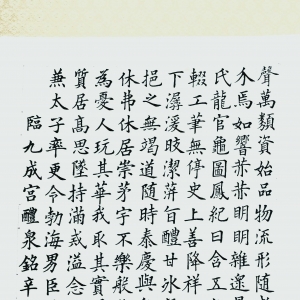 聲萬類資始品物流形隨
介焉如響赫赫明明雜遝景
氏龍官龜圖鳳紀日含五
輟工筆無停史上善降祥
下潺湲皎潔蓱旨醴甘冰
挹之無竭道隨時泰慶與
休弗休居崇茅宇不樂般
為憂人玩其華我取其實
質居高思墜持滿戒溢念
兼太子率更令勃海男臣
臨九成宮醴泉銘辛